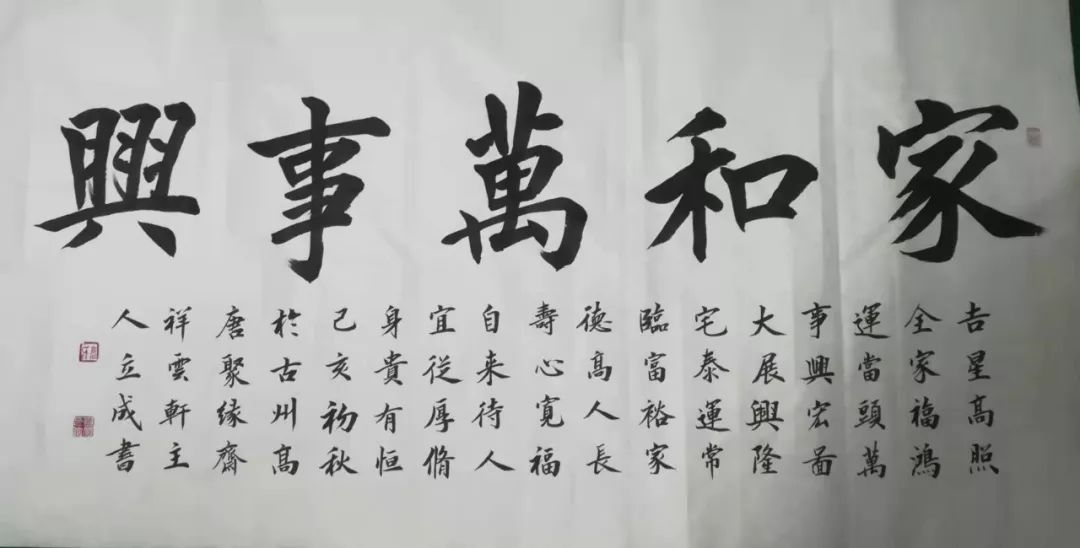 家和萬事興
吉星高照
全家福鴻
運當頭萬
事興宏圖
大展興隆
宅泰運常
臨富裕家
德高人長
壽心寬福
自来待人
宜從厚脩
身貴有恒
己亥初秋
於古州高
唐聚缘齋
祥雲軒主
人立成書